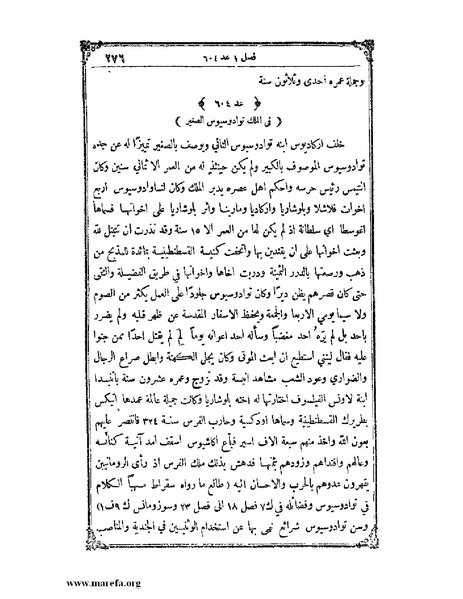 فصل ١ عد ٦٠٤ ٢٧٦
وجملة عمره احدى وثلاثون سنة
﴿ عد ٦٠٤ ﴾
( في الملك توادوسيوس الصغير )
خلف اركاديوس ابنه توادوسيوس الثاني ويوصف بالصغير تمييزًا له عن جده
توادوسيوس الموصوف بالكبير ولم يكن حينئذٍ له من العمر الا ثماني سنين وكان
انتيمس رئيس حرسه واحكم اهل عصره يدبر الملك وكان لتاودوسيوس اربع
اخوات فلاشلا وبلوشاريا واركاديا ومارينا واثر بلوشاريا على اخواتها فسماها
اغوسطا اي سلطانة اذ لم يكن لها من العمر الا ١٥ سنة وقد نذرت ان تتبتل لله
وبعثت اخواتها على ان يقتدين بها واتحفت كنيسة القسطنطينية بمائدة للمذبح من
ذهب ورصعتها بالدرر الثمينة ودربت اخاها واخواتها في طريق الفضيلة والتقى
حتى كان قصرهم يظن ديرًا وكان توادوسيوس جلودًا على العمل يكثر من الصوم
ولا سيما يومي الاربعا والجمعة ويحفظ الاسفار المقدسة عن ظهر قلبه ولم يضرر
باحد بل لم يره احد مغضبًا وسأله احد اعوانه يومًا لِمَ لم يقتل احدًا ممن جنوا
عليه فقال ليتني استطيع ان ابعث الموتى وكان يجلي الكهنة وابطل صراع الرجال
والضواري وعود الشعب مشاهد انيسة وقد تزوج وعمره عشرون سنة باتنيدا
ابنة لاونس الفيلسوف اختارتها له اخته بلوشاريا وكانت جميلة عالمة عمدها اتيكس
بطريرك القسطنطينية وسماها اودكسية وحارب الفرس سنة ٣٢٤ فانتصر عليهم
بعون الله واخذ منهم سبعة الاف اسير فباع اكاشيوس اسقف امد آنية كنائسه
وعالهم وافتداهم وزودهم بثمنها فدهش بذلك ملك الفرس اذ رأى الرومانيين
يقهرون عدوهم بالحرب والاحسان اليه ( طالع ما رواه سقراط مسهبًا الكلام
في توادوسيوس وفضائله في ك٧ فصل ١٨ الى فصل ٢٣ وسوزومانس ك ٩ف١)
وسن توادوسيوس شرائع نهى بها عن استخدام الوثنيين في الجندية والمناصب
www.marefa.org